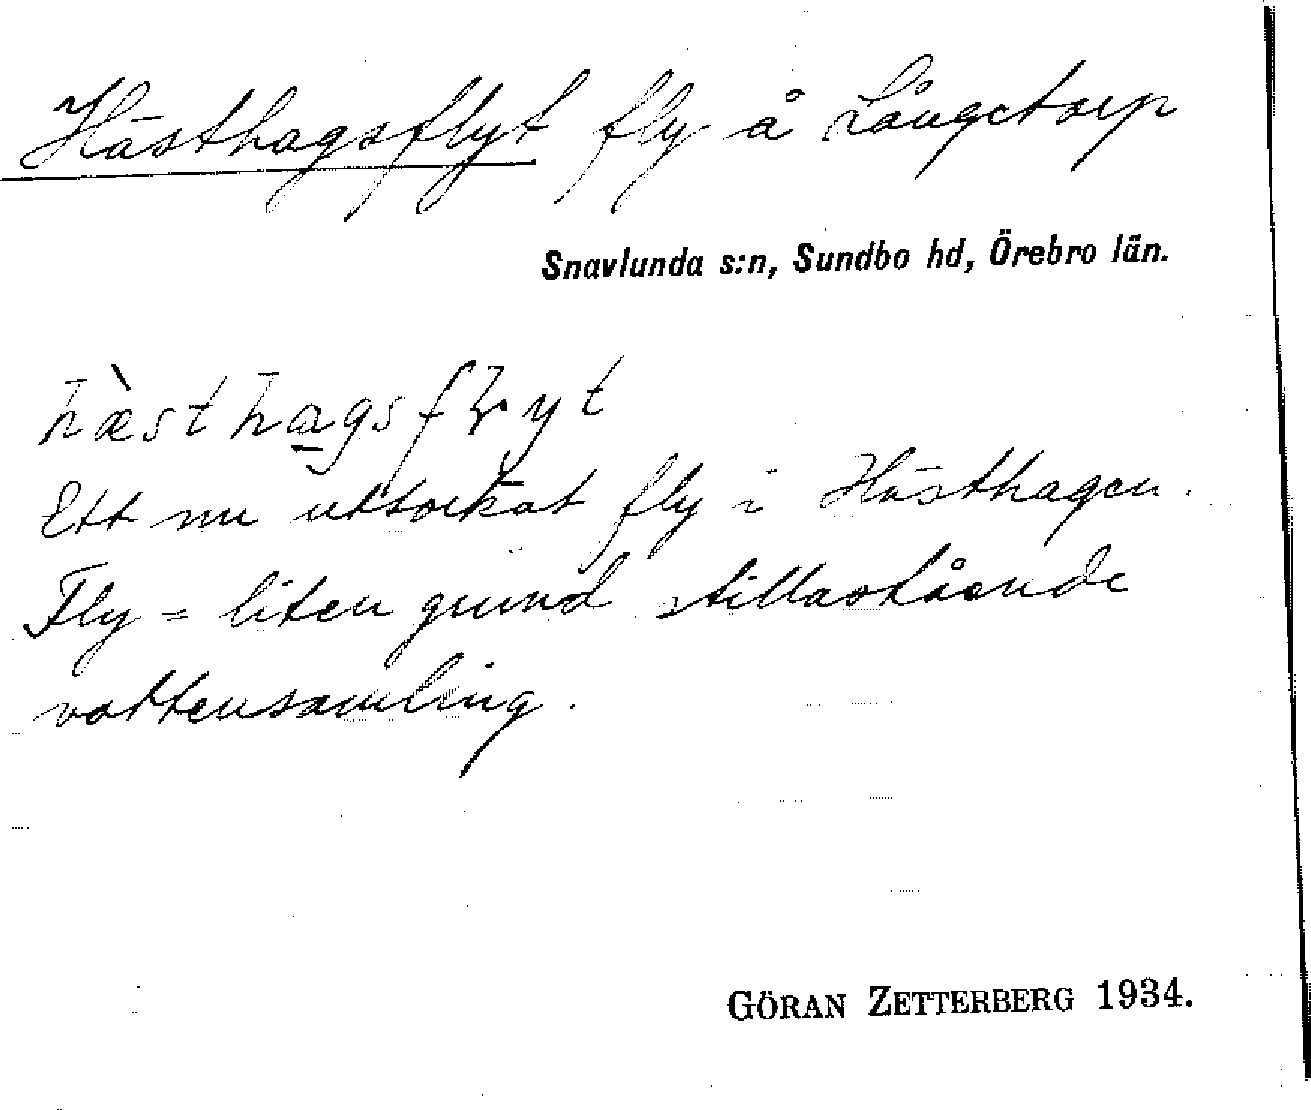 Hästhagsflyt fly å Långetorp
Snavlunda s:n, Sundbo hd, Örebro län.
Ett nu uttorkat fly i Hästhagen.
Fly = liten grund stillastående
vattensamling.
GÖRAN ZETTERBERG 1934.